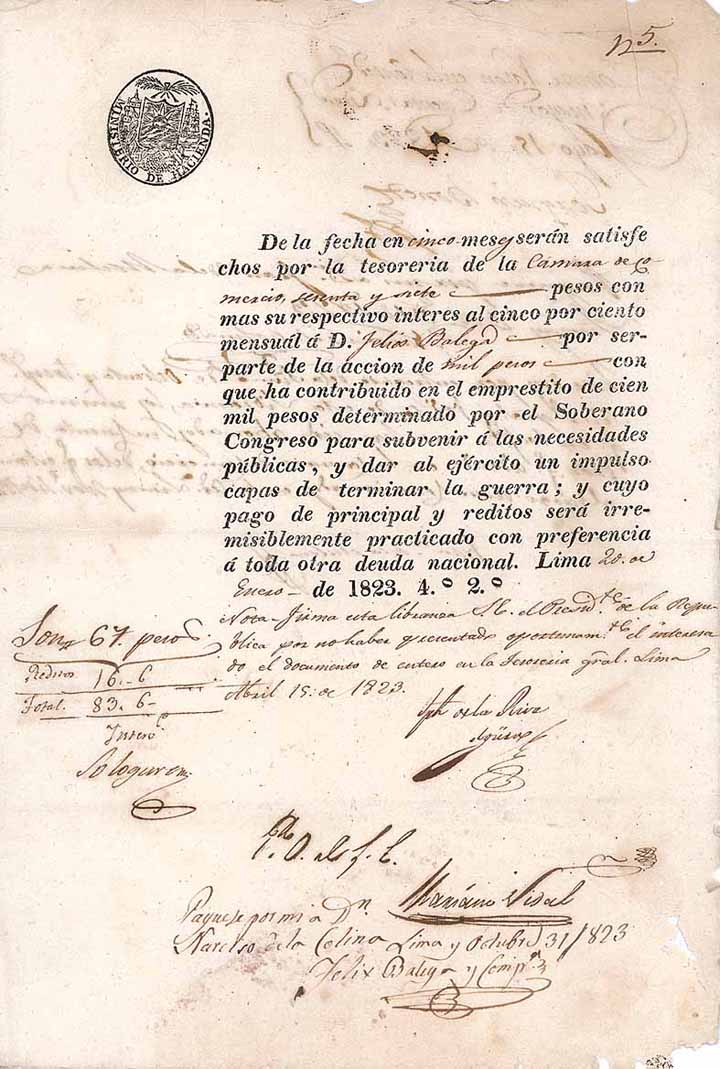 N 5.
MINISTERIO DE HACIENDA.
De la fecha en cinco meses serán satisfe
chos por la tesoreria de la Cámara de Co
mercio, sesenta y siete pesos con
mas su respectivo interes al cinco por ciento
mensuál á D. Felix Balega por ser-
parte de la accion de mil pesos con
que ha contribuido en el emprestito de cien
mil pesos determinado por el Soberano
Congreso para subvenir á las necesidades
públicas, y dar al ejército un impulso
capas de terminar la guerra; y cuyo
pago de principal y reditos será irre-
misiblemente practicado con preferencia
á toda otra deuda nacional. Lima 20. de
Enero de 1823. 4.º 2.º
Nota - Firma esta libranza S.E. el Presid.te de la Repu
blica por no haber presentado oportunam.te el interesa
do el documento de entero en la Tesoreria gral. Lima
Abril 15. de 1823.
Son 67. pesos
Reditos 16.-6
Total. 83.6-
Jph de la Riva
Aguero
P. O. de S. E.
Mariano Vidal
Paguese por mi a Dn
Narciso de la Colina Lima y Octubre 31/823
Felix Balega y Comp.a